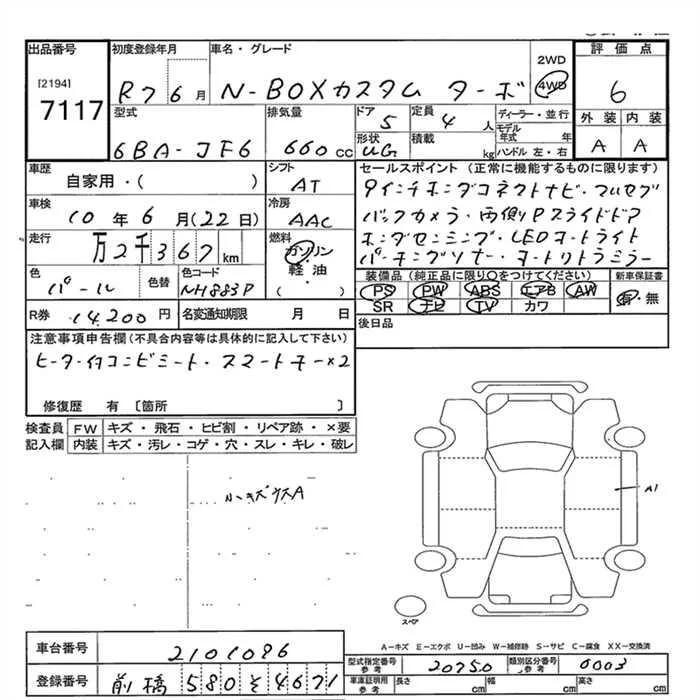 出品番号 初度登録年月 車名・グレード 評価点
[2194]
7117
R7 6月 N-BOXカスタム ターボ 2WD 4WD 6
型式 排気量 ドア 定員 ディーラー・並行 外装 内装
6BA-JF6 660cc 5 4人 モデル年式 年 A A
形状 UG 積載 kg ハンドル 左・右
車歴 シフト セールスポイント(正常に機能するものに限ります)
自家用・( ) AT 9インチホンダコネクトナビ・フルセグ
車検 冷房 バックカメラ・両側Pスライドドア
10年6月(22日) AAC ホンダセンシング・LEDオートライト
走行 燃料 パーキングソナー・オートリトラミラー
万2千367km ガソリン
軽油
( )
色 色替 色コード 装備品(純正品に限り○をつけてください) 新車保証書
パール NH883P PS PW ABS エアB AW 有・無
SR ナビ TV カワ
R券 14,200円 名変通知期限 月 日 後日品
注意事項申告欄(不具合内容等は具体的に記入して下さい)
ヒーター付コンビシート・スマートキー×2
修復歴 有 〔箇所 〕
検査員 FW キズ・飛石・ヒビ割・リペア跡・×要
記入欄 内装 キズ・汚レ・コゲ・穴・スレ・キレ・破レ
小キズウスA
A1
スペア
A-キズ E-エクボ U-凹み W-補修跡 S-サビ C-腐食 XX-交換済
車台番号 2101086
型式指定番号 参考 20750 類別区分番号 参考 0003
登録番号 前橋 580 そ 4671
車庫証明用 参考 長さ cm 幅 cm 高さ cm